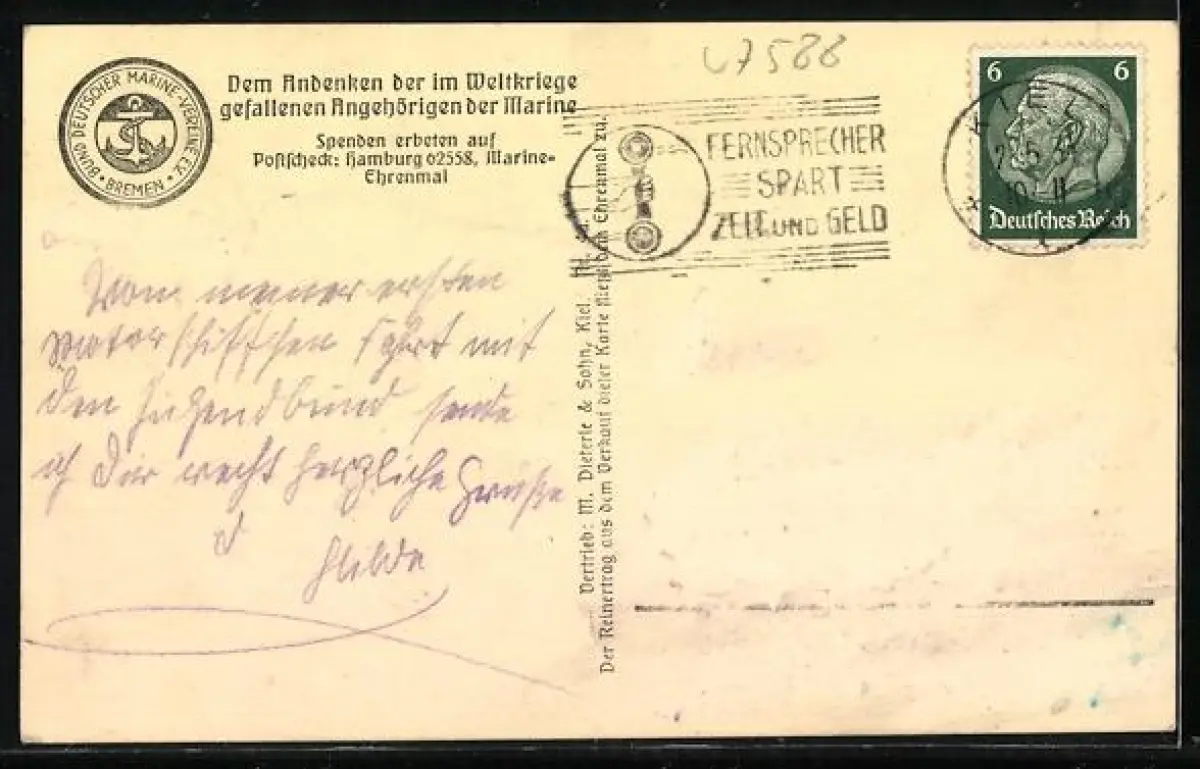 47588
BUND DEUTSCHER MARINE-VEREINE E.V.
• BREMEN •
Dem Andenken der im Weltkriege
gefallenen Angehörigen der Marine
Spenden erbeten auf
Postscheck: Hamburg 62558, Marine-
Ehrenmal
FERNSPRECHER
SPART
ZEIT UND GELD
6 6
Deutsches Reich
KIEL
Von meiner ersten
Motorschiffchen Fahrt mit
den Jugendbund sende
ich Dir recht herzliche Grüße
d
Hilde
Vertrieb: M. Dieterle & Sohn, Kiel.
Der Reinertrag aus dem Verkauf dieser Karte fließt dem Ehrenmal zu.